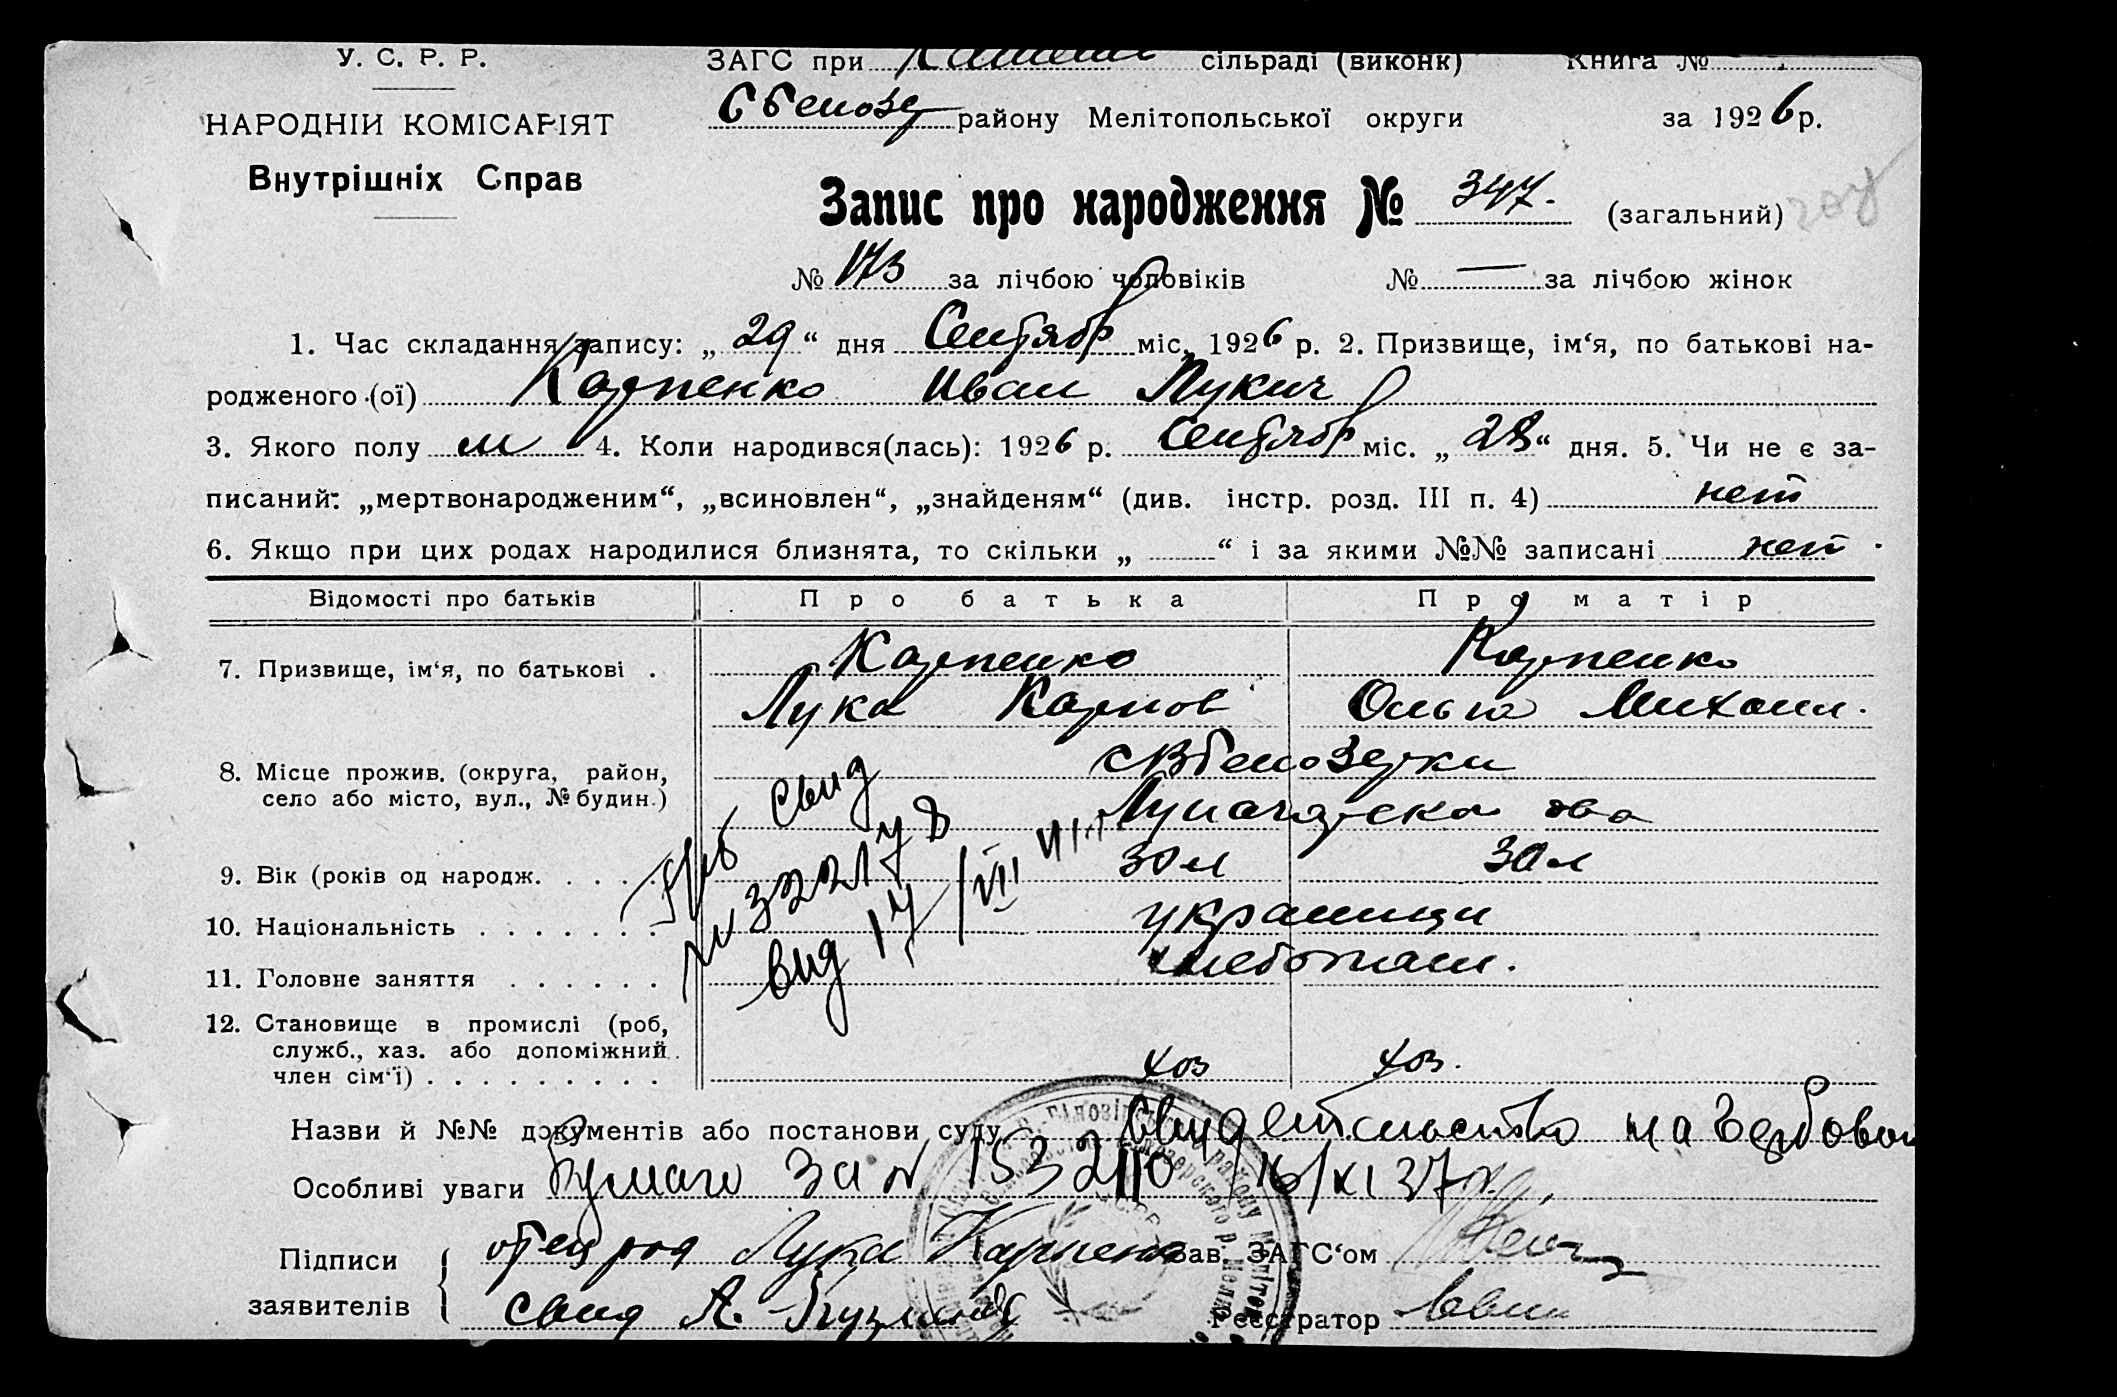 У. С. Р. Р.
ЗАГС при сільраді (виконк) Книга №
НАРОДНІЙ КОМІСАРІЯТ
Внутрішніх Справ
району Мелітопольської округи за 1926 р.
Запис про народження № 347. (загальний)
№ 173 за лічбою чоловіків № — за лічбою жінок
1. Час складання запису: „29“ дня Сентябр міс. 1926 р. 2. Призвище, ім‘я, по батькові на-
родженого (ої) Карпенко Иван Лукич
3. Якого полу м 4. Коли народився(лась): 1926 р. Сентябр міс. „28“ дня. 5. Чи не є за-
писаний: „мертвонародженим“, „всиновлен“, „знайденям“ (див. інстр. розд. III п. 4) нет
6. Якщо при цих родах народилися близнята, то скільки „ “ і за якими №№ записані нет
Відомості про батьків Про батька Про матір
7. Призвище, ім‘я, по батькові . Карпенко Карпенко
Лука Карпов Ольга Михаил.
8. Місце прожив. (округа, район,
село або місто, вул., № будин.)
9. Вік (років од народж. . . . . 30 л 30 л
10. Національність . . . . . . . украинци
11. Головне заняття . . . . . . хлебопаш.
12. Становище в промислі (роб,
служб., хаз. або допоміжний
член сім‘ї) . . . . . . . . . хоз хоз.
Назви й №№ документів або постанови суду Свидетельство на Гербовой
Особливі уваги бумаге за № 153210 16/XI 37 г.
Підписи отец род Лука Карпенко Зав. ЗАГС‘ом
заявителів свид А. Реєстратор